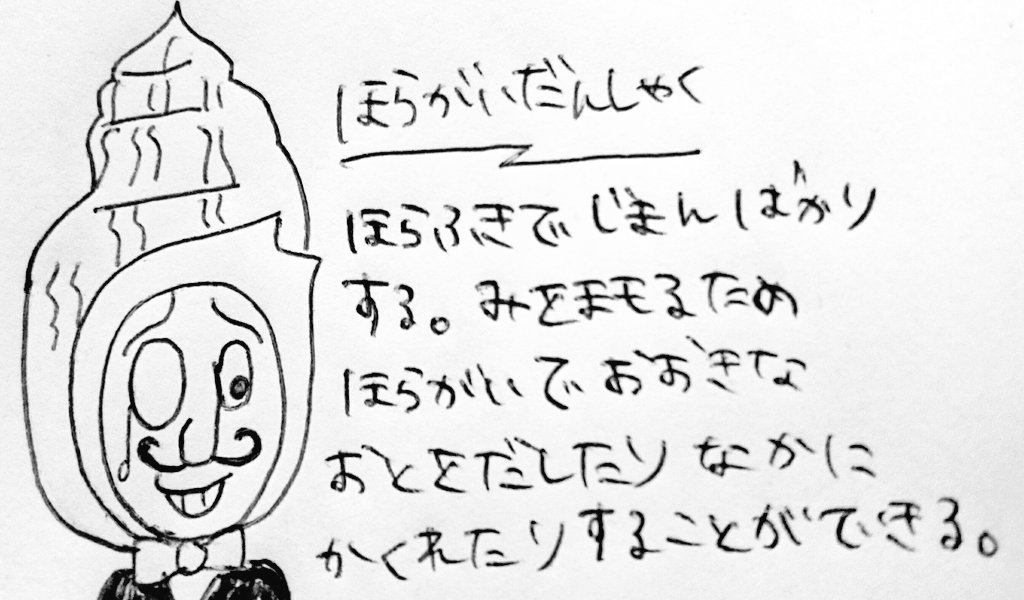 ほらがいだんしゃく
ほらふきでじまんばかり
する。みをまもるため
ほらがいでおおきな
おとをだしたりなかに
かくれたりすることができる。